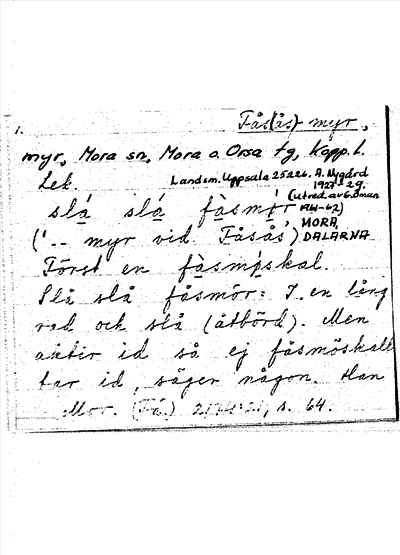 1. Fås(ås)-myr,
myr, Mora sn, Mora o. Orsa tg, Kopp. l.
Lek. Landsm. Uppsala 25226. A. Nygård
1927-29.
(utred. av G. Oman
slå slå fåsmör
MORA,
('-- myr vid Fåsås') DALARNA
Först en fåsmyskal.
Slå slå fåsmör: I en lång
rad och slå (åtbörd). Men
aktir id så ej fåsmöskall
tar id, säger någon. Han
Mor. (Få.) s. 64.